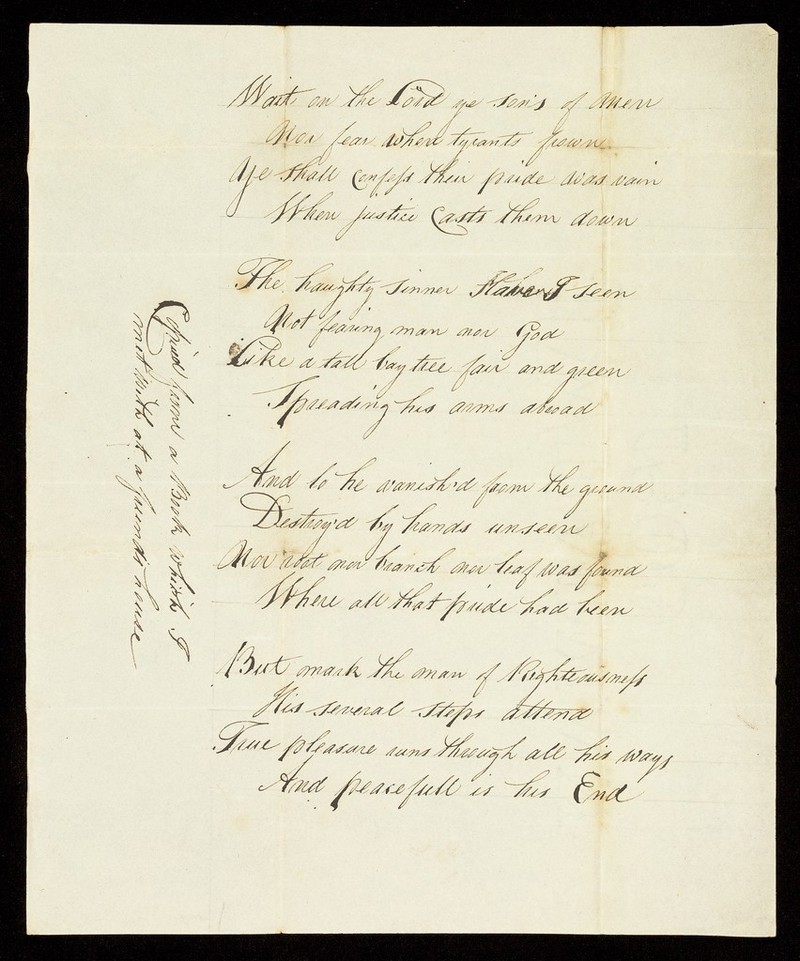 Wait on the Lord ye sons of Men
Nor fear when tyrants frown
Ye shall Confess their pride was vain
When justice Casts them down
The haughty sinner Have I seen
Not fearing man nor God
Like a tall bay tree fair and green
Spreading his arms abroad
And lo he vanish'd from the ground
Destroy'd by hands unseen
Nor root nor branch nor leaf was found
Where all that pride had been
But mark the man of Righteousness
His several steps attend
True pleasure runs through all his ways
And peacefull is his End
Copied from a Book which I
met with at a friends house